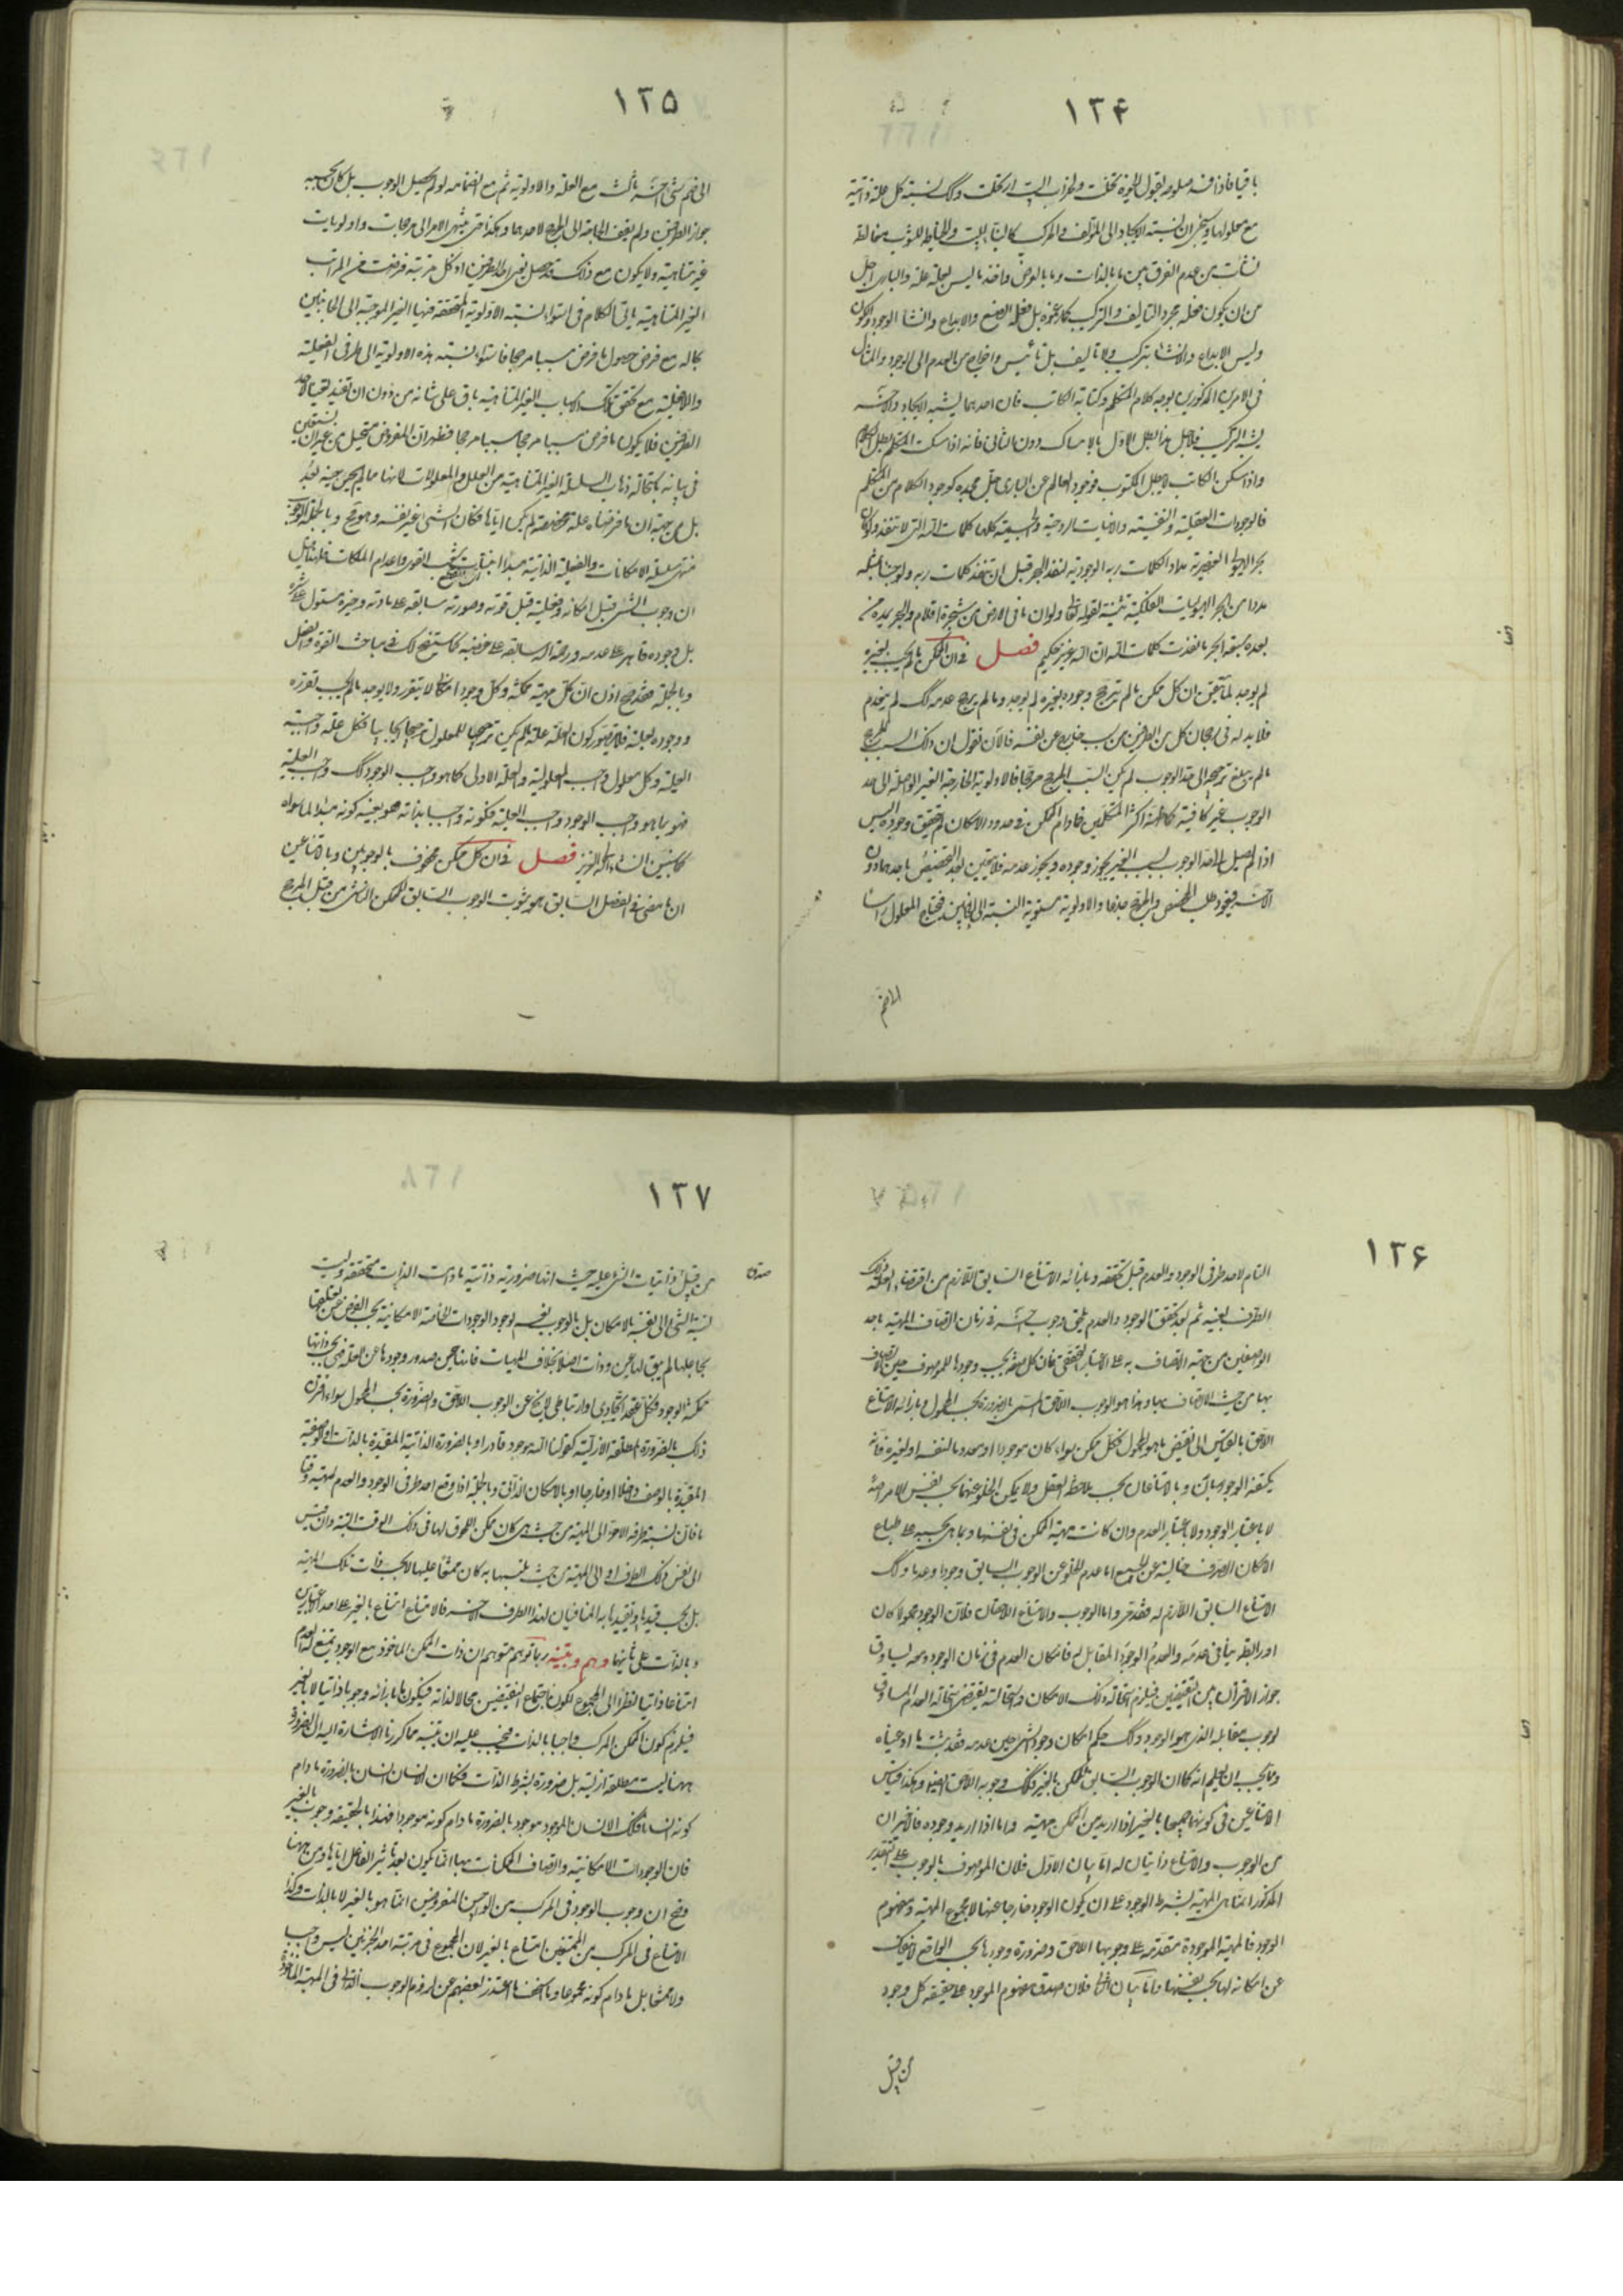 ١٢۴
باقيا فاذا فسد معلومه لقول اليبوسة تخلت وطراب البيت ان تخلت وكك نسبة كل علة ذاتية
مع معلولها وسيظهر ان نسبة الايجاد الى المؤلف والمركب كالبناء للبيت والخياط للثوب مغالطة
نشأت من عدم الفرق بين ما بالذات وما بالعرض واخذ ما ليس بعلة علة والبارى اجل
من ان يكون فعله مجرد التاليف والتركيب كما زعموه بل فعله الصنع والابداع وانشاء الوجود والكون
وليس الابداع والانشاء بتركيب ولا تاليف بل تأييس واخراج من العدم الى الوجود والمثال
فى الامرين المذكورين بوجه كلام المتكلم وكتابة الكاتب فان احدهما يشبه الايجاد والاخر
يشبه التركيب فلاجل هذا بطل الاول بالامساك دون الثانى فانه اذا سكت المتكلم بطل الكلام
واذا سكن الكاتب لا يبطل المكتوب فوجود العالم عن البارى جل مجده كوجود الكلام من المتكلم
فالوجودات العقلية والنفسية والانيات الروحية والجسمية كلها كلمات الله التى لا تنفد ولو كان
بحر الهيولى العنصرية مدادا لكلمات ربه الوجودية لنفد البحر قبل ان تنفد كلمات ربه ولو جئنا بمثله
مددا من ابحر الهيوليات الفلكية تثنية لقوله تعالى ولو ان ما فى الارض من شجرة اقلام والبحر يمده من
بعده سبعة ابحر ما نفدت كلمات الله ان الله عزيز حكيم فصل فى ان الممكن ما لم يجب بغيره
لم يوجد لما تيقن ان كل ممكن ما لم يترجح وجوده بغيره لم يوجد وما لم يرجح عدمه كك لم ينعدم
فلا بد له فى رجحان كل من الطرفين من سبب خارج عن نفسه فالآن نقول ان ذلك السبب المرجح
ما لم يبلغ ترجيحه الى حد الوجوب لم يكن السبب المرجح مرجحا فالاولوية الخارجية الغير الواصلة الى حد
الوجوب غير كافية كما ظنه اكثر المتكلمين فما دام الممكن فى حدود الامكان لم يتحقق وجوده اليس
اذا لم يصل الى حد الوجوب بسبب الغير يجوز وجوده ويجوز عدمه فلا يتعين بعد التخصيص باحدهما دون
الآخر فيعود طلب المخصص والمرجح جذعا والاولوية مستوية النسبة الى الجانبين فيحتاج المعلول راسا
الى ضم
١٢۵
الى ضم شئ آخر ثالث مع العلة والاولوية ثم مع انضمامه لو لم يحصل الوجوب بل كان بحسبه
جواز الطرفين ولم يقف الحاجة الى المرجح لاحدهما وهكذا حتى ينتهى الامر الى مرجحات واولويات
غير متناهية ولا يكون مع ذلك قد حصل تعين احد الطرفين اذ كل مرتبة فرضت من المراتب
الغير المتناهية ياتى الكلام فى استواء نسبة الاولوية المتحققة فيها الغير الموجبة الى الجانبين
بحاله مع فرض حصول ما فرض سببا مرجحا فاستواء نسبة هذه الاولوية الى طرفى الفعلية
واللافعلية مع تحقق تلك الاسباب الغير المتناهية باق على شانه من دون ان تفيد تعينا لاحد
الطرفين فلا يكون ما فرض سببا مرجحا سببا مرجحا فظهر ان المفروض مستحيل من غير ان نستعين
فى بيانه باستحالة ذهاب السلسلة الغير المتناهية من العلل والمعلولات لانها ما لم يحن حينه بعد
بل من جهة ان ما فرضناه علة مخصصة لم يكن اياها فكان الشئ غير نفسه وهو مح وبالجملة الوجوب
منتهى سلسلة الامكانات والفعلية الذاتية مبدأ انبثاث شعب القوى واعدام الملكات فلهذا قيل
ان وجوب الشئ قبل امكانه وفعليته قبل قوته وصورته سابقة على مادته وخيره مستول على شره
بل وجوده قاهر على عدمه ورحمة الله سابقة على غضبه كما ستتضح لك فى مباحث القوة والفعل
وبالجملة فقد صح اذن ان كل مهية ممكنة وكل وجود امكانى لا يتقرر ولا يوجد ما لم يجب تقرره
ووجوده بعلته فلا يتصور كون العلة علة ما لم يكن ترجيحها للمعلول ترجيحا ايجابيا فكل علة واجبة
العلية وكل معلول واجب المعلولية والعلة الاولى كما هو واجب الوجود كك واجب العلية
فهو بما هو واجب الوجود واجب العلية فكونه واجبا بذاته هو بعينه كونه مبدأ لما سواه
كما سيبين انشاء الله العزيز فصل فى ان كل ممكن محفوف بالوجوبين وبالامتناعين
ان ما مضى فى الفصل السابق هو ثبوت الوجوب السابق للممكن الناشى من قبل المرجح
١٢۶
التام لاحد طرفى الوجود والعدم قبل تحققه وبازائه الامتناع السابق اللازم من اقتضاء العلة ذلك
الطرف بعينه ثم بعد تحقق الوجود والعدم يلحق وجوب آخر فى زمان اتصاف المهية باحد
الوصفين من جهة الاتصاف به على الاعتبار التحققى فان كل صفة يجب وجودها للموصوف حين الاتصاف
بها من حيث الاتصاف بها وهذا هو الوجوب اللاحق المسمى بالضرورة بحسب المحمول وبازائه الامتناع
اللاحق بالقياس الى نقيض ما هو المحمول فكل ممكن سواء كان موجودا او معدوما بالنفس او لغيره فانه
يكتنفه الوجوبان وبالامتناعان بحسب ملاحظة العقل ولا يمكن الخلو عنهما بحسب نفس الامر اصلا
لا باعتبار الوجود ولا باعتبار العدم وان كانت مهية الممكن فى نفسها وبما هى بحسبه على طباع
الامكان الصرف خالية عن الجميع اما عدم الخلو عن الوجوب السابق وجودا وعدما وكك
الامتناع السابق اللازم له فقد مر واما الوجوب والامتناع اللاحقان فلان الوجود محمولا كان
او رابطة ينافى عدمه والعدم الوجود المقابل له فامكان العدم فى زمان الوجود ومعه يساوق
جواز الاقتران بين النقيضين فيلزم استحالة ذلك الامكان واستحالته يقتضى استحالة العدم المساوق
لوجوب مقابله الذى هو الوجود وكك حكم امكان وجود الشئ حين عدمه فقد ثبت ما ادعيناه
ومما يجب ان يعلم انه كما ان الوجوب السابق للممكن بالغير فكك وجوبه اللاحق ايضا وهكذا قياس
الامتناعين فى كونهما جميعا بالغير اذا اريد من الممكن مهيته واما اذا اريد وجوده فالاخيران
من الوجوب والامتناع ذاتيان له اما بيان الاول فلان الموصوف بالوجوب على التقدير
المذكور انما هى المهية بشرط الوجود على ان يكون الوجود خارجا عنها لا مجموع المهية ومفهوم
الوجود فالمهية الموجودة متقدمة على وجوبها اللاحق وضرورة وجودها بحسب الواقع لا ينفك
عن امكانه لها بحسب نفسها واما بيان الثانى فلان صدق مفهوم الموجود على حقيقة كل وجود
من قبيل
١٢٧
من قبيل ذاتيات الشئ عليه حيث انها ضرورية ذاتية مادامت الذات متحققة وليست
نسبة الشئ الى نفسه بالامكان بل بالوجوب نعم لوجود الوجودات الخاصة الامكانية بحسب الفرض حين تعلقها
بجاعلها لم يبق لها عين وذات اصلا بخلاف المهيات فانها حين صدور وجودها عن العلة فهى بحسب ذاتها
ممكنة الوجود فكل عقد ايجادى او ارتباطى لا يخ عن الوجوب اللاحق والضرورة بحسب المحمول سواء اقترن
ذلك بالضرورة المطلقة الازلية كقولنا الله موجود قادر او بالضرورة الذاتية المقيدة بالذات او الوصفية
المقيدة بالوصف داخلا او خارجا او بالامكان الذاتى وبالجملة اذا وقع احد طرفى الوجود والعدم لمهية وقتا
ما فان نسبة طرفه الاخر الى المهية من حيث هى كان ممكن اللحوق لها فى ذلك الوقت البتة وان قيس
الى نفس ذلك الطرف او الى المهية من حيث تلبسها به كان ممتنعا عليها لا بحسب ذات تلك المهية
بل بحسب قيدها وتقييدها به المنافيان لهذا الطرف الآخر فالامتناع امتناع بالغير على احد الاعتبارين
وبالذات على ثانيهما وهم وتنبيه ربما توهم متوهم ان ذات الممكن الماخوذ مع الوجود يمتنع له العدم
امتناعا ذاتيا نظرا الى المجموع لكون اجتماع النقيضين محالا لذاته فيكون ما بازائه وجوبا ذاتيا لا بالغير
فيلزم كون الممكن المركب واجبا بالذات فيجب عليه ان يتنبه مما كررنا الاشارة اليه ان الضرورة
ههنا ليست مطلقة ازلية بل ضرورة بشرط الذات فكما ان الانسان انسان بالضرورة مادام
كونه انسانا فكذلك الانسان الموجود موجود بالضرورة مادام كونه موجودا فهذا بالحقيقة وجوب بالغير
فان الوجودات الامكانية واتصاف الممكنات بها انما يكون بعد تأثير الفاعل اياها ومن ههنا
وضح ان وجوب الوجود فى المركب من الواجبين المفروضين انما هو بالغير لا بالذات وكذا
الامتناع فى المركب من الممتنعين امتناع بالغير لان المجموع فى مرتبة احد الجزئين ليس واجبا
ولا ممتنعا بل مادام كونه مجموعا وما اسخف ما اعتذر بعضهم عن لزوم الوجوب الذاتى فى المهية الماخوذة